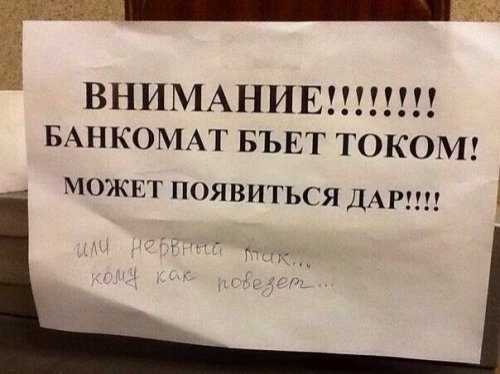 ВНИМАНИЕ!!!!!!!!
БАНКОМАТ БЪЕТ ТОКОМ!
МОЖЕТ ПОЯВИТЬСЯ ДАР!!!!
или нервный тик...
кому как повезет...